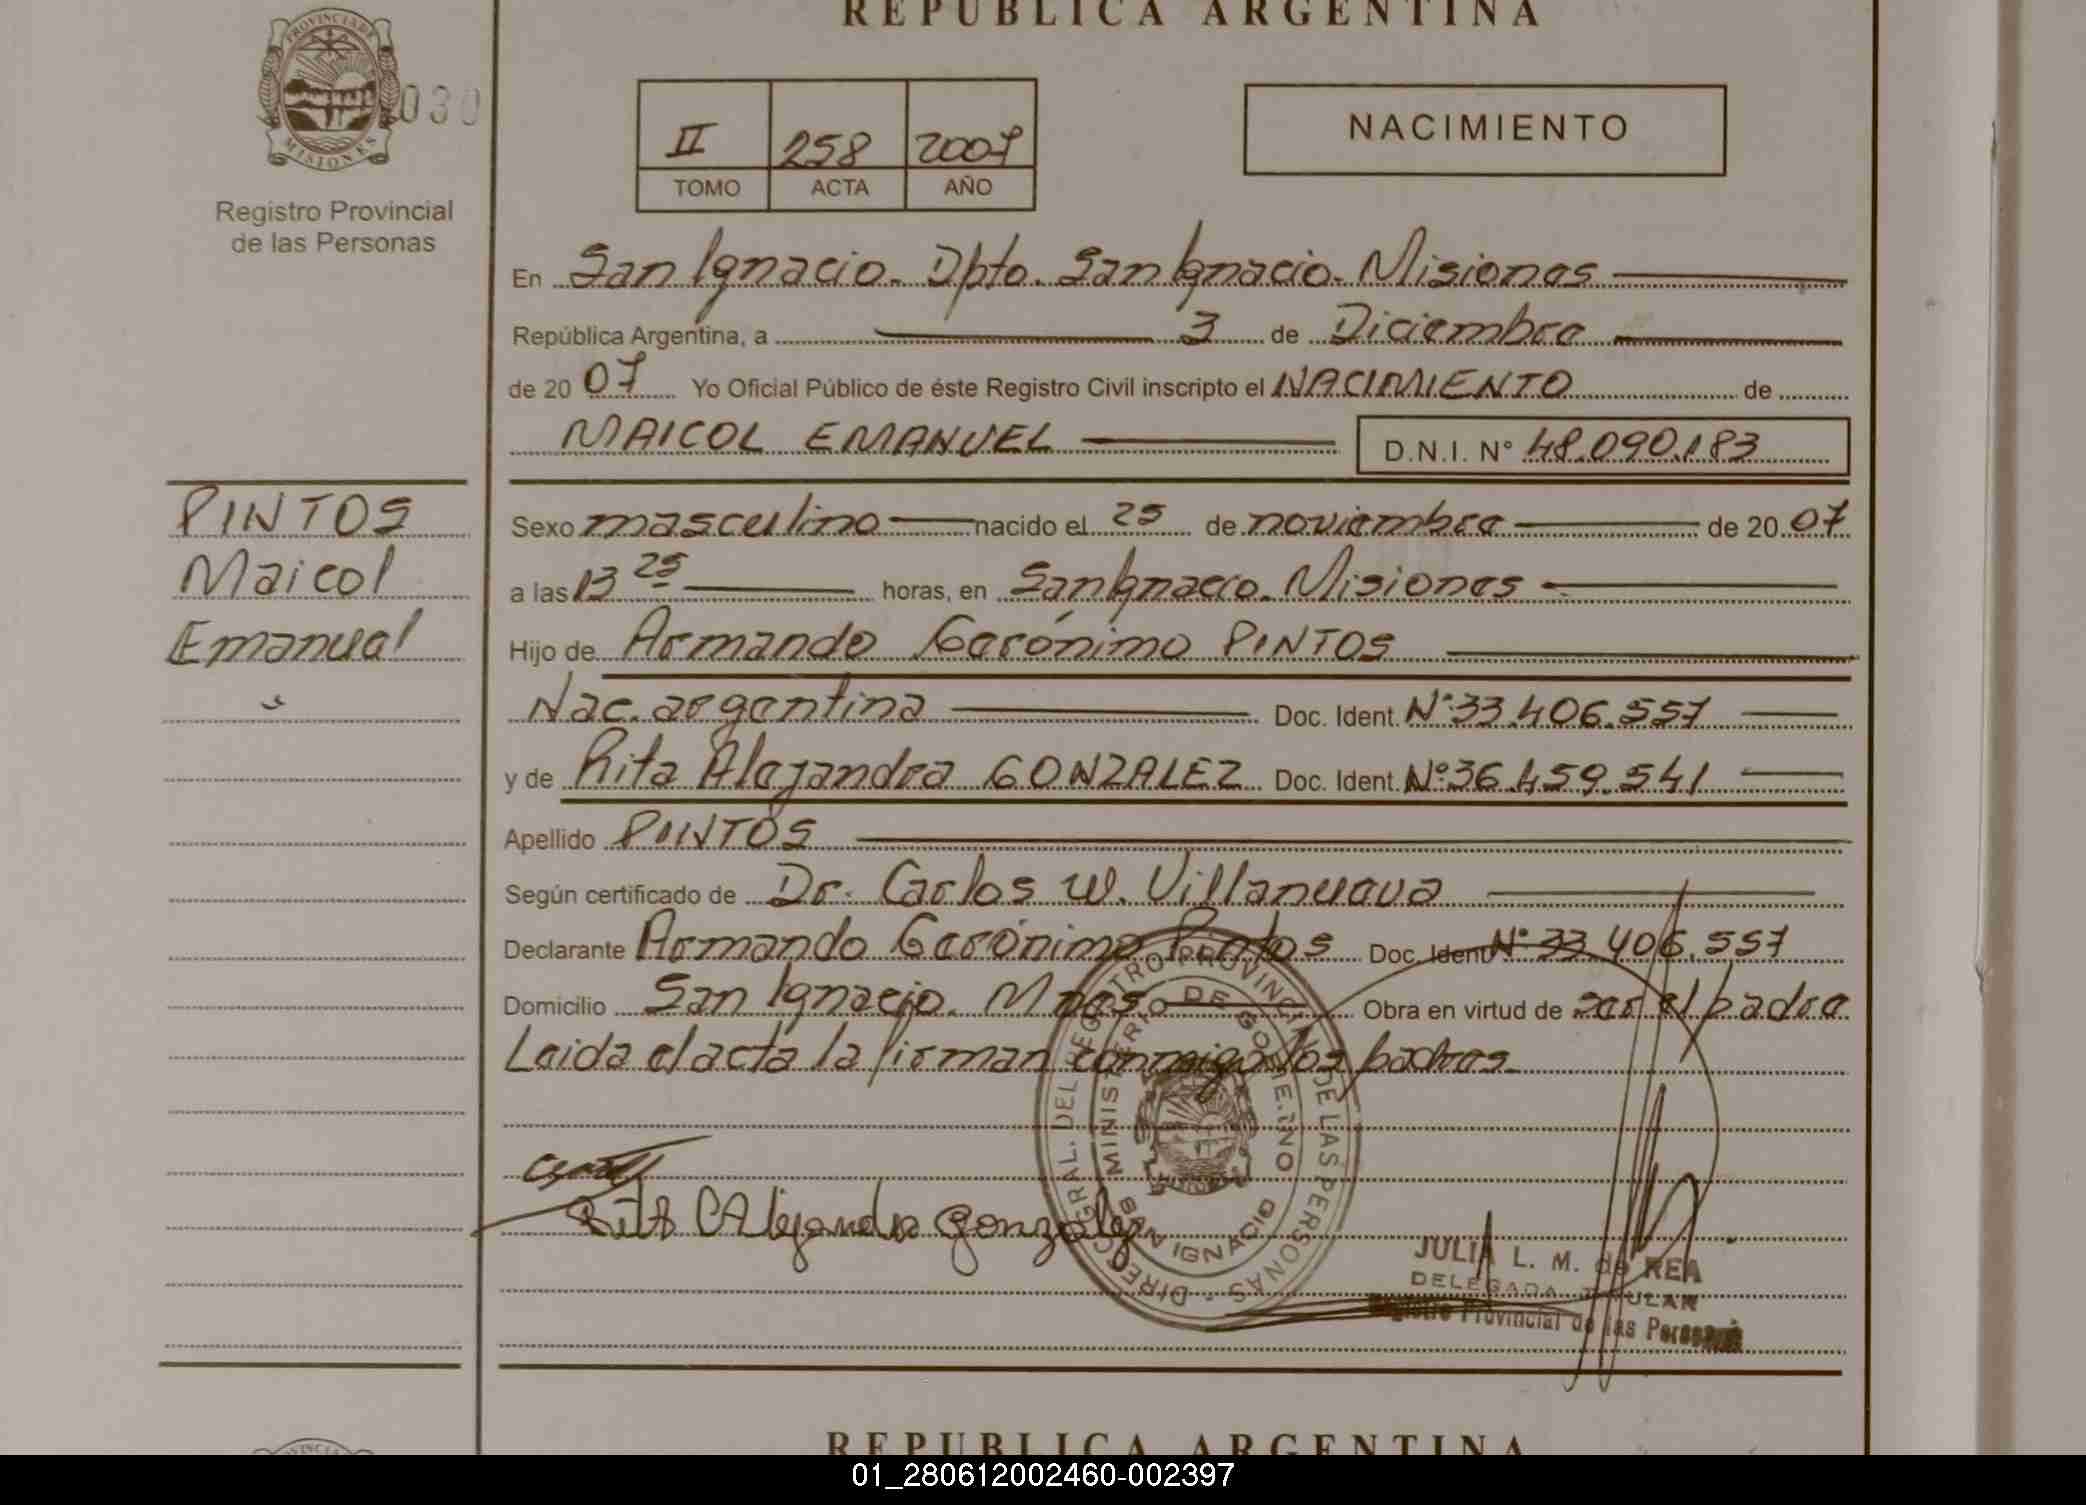 REPUBLICA ARGENTINA
PROVINCIA DE
MISIONES
030
Registro Provincial
de las Personas
II 258 2007
TOMO ACTA AÑO
NACIMIENTO
En San Ignacio. Dpto. San Ignacio. Misiones
República Argentina, a 3 de Diciembre
de 20 07 Yo Oficial Público de éste Registro Civil inscripto el NACIMIENTO de
MAICOL EMANUEL D.N.I. N° 48.090.183
PINTOS
Maicol
Emanuel
Sexo masculino nacido el 25 de noviembre de 20 07
a las 13 25 horas, en San Ignacio. Misiones
Hijo de Armando Gerónimo PINTOS
Nac. argentina Doc. Ident. N° 33.406.557
y de Rita Alejandra GONZALEZ Doc. Ident. N° 36.459.541
Apellido PINTOS
Según certificado de Dr. Carlos W. Villanueva
Declarante Armando Gerónimo Pintos Doc. Ident. N° 33.406.557
Domicilio San Ignacio. Mnes. Obra en virtud de ser el padre
Leida el acta la firman conmigo los padres.
Rita Alejandra Gonzalez
DIREC. GRAL. DEL REGISTRO PROVINCIAL DE LAS PERSONAS -
MINISTERIO DE GOBIERNO
SAN IGNACIO
JULIA L. M. de REA
DELEGADA TITULAR
Registro Provincial de las Personas
REPUBLICA ARGENTINA
01_280612002460-002397